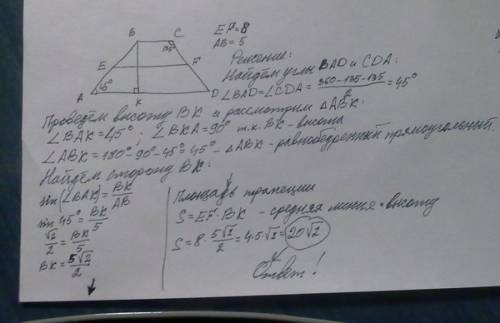 B C EF=8
135° AB=5
E F Решение:
Найдём углы BAD и CDA:
A 45° K D ∠BAD=∠CDA= (360-135-135)/2 =45°
Проведём высоту BK и рассмотрим △ABK:
∠BAK=45°; ∠BKA=90° т.к. BK - высота
∠ABK=180-90-45=45° - △ABK - равнобедренный прямоугольный.
Найдём сторону BK:
sin(∠BAK)=BK/AB
sin 45°=BK/5
√2/2=BK/5
BK=5√2/2
Площадь трапеции
S=EF·BK - средняя линия · высоту
S=8·5√2/2=4·5√2=20√2
Ответ!